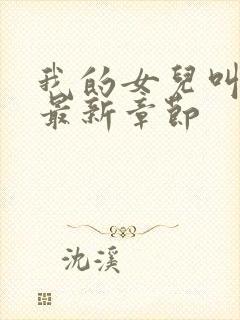 我的女兒叫
最新章節
沈溪